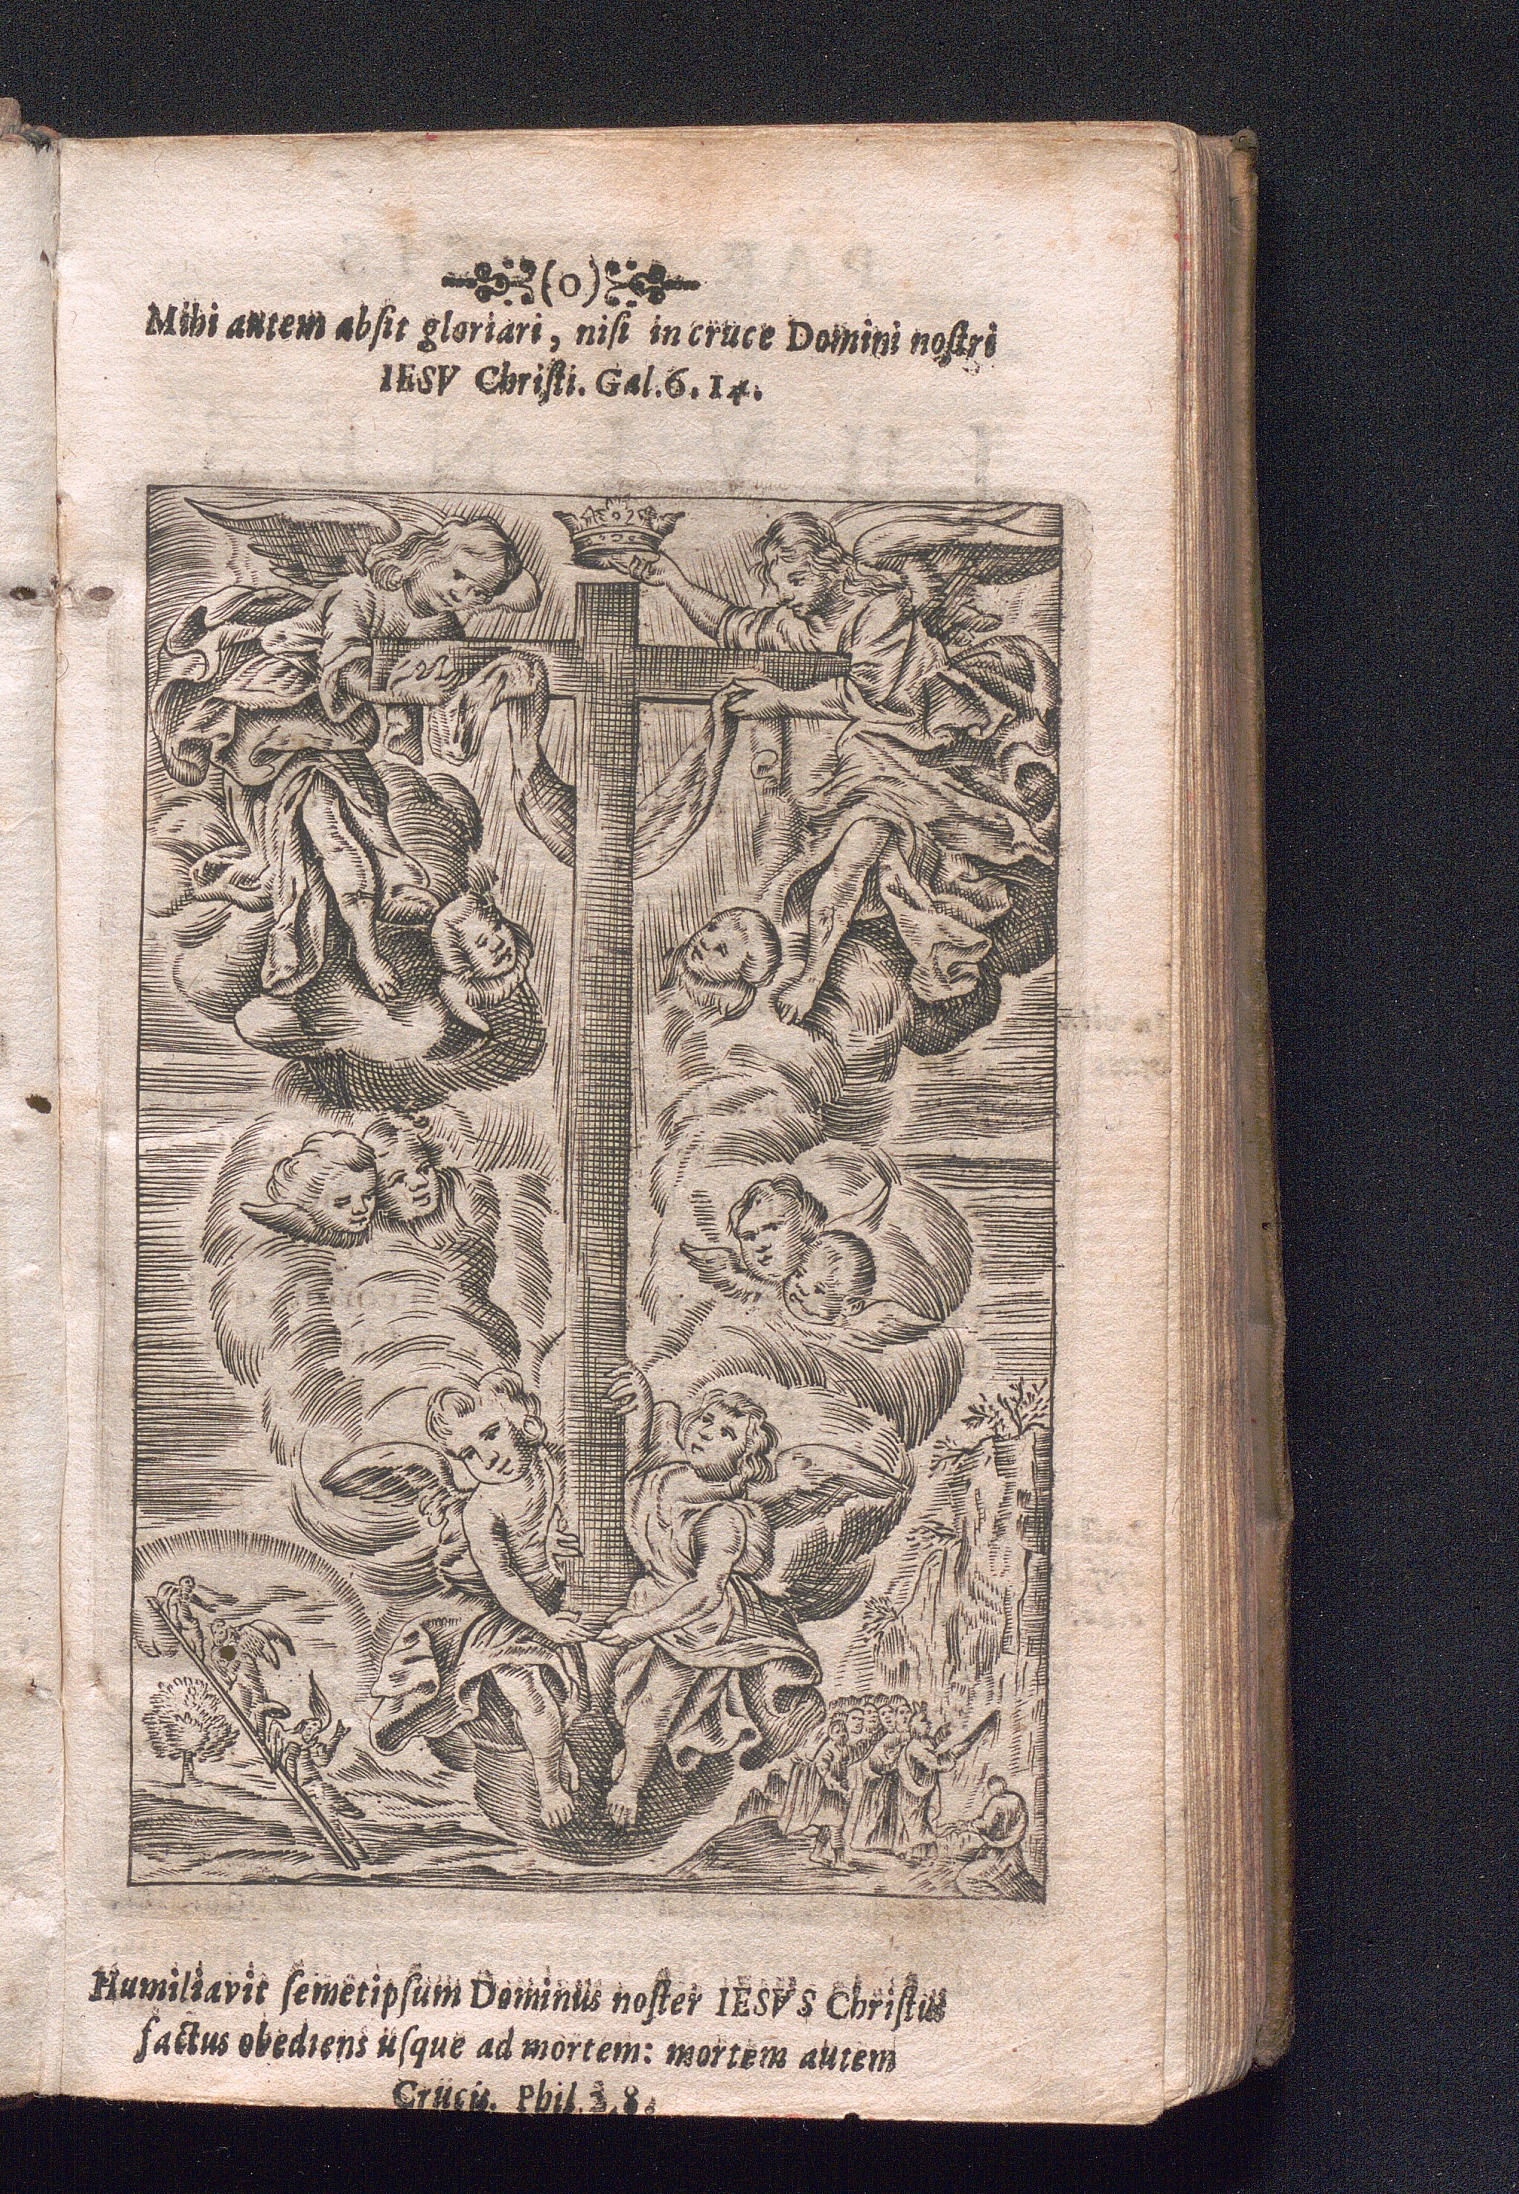 (o)
Mihi autem absit gloriari, nisi in cruce Domini nostri
IESV Christi. Gal. 6. 14.
Humiliavit semetipsum Dominus noster IESVS Christus
factus obediens usque ad mortem: mortem autem
Crucis. Phil. 8.